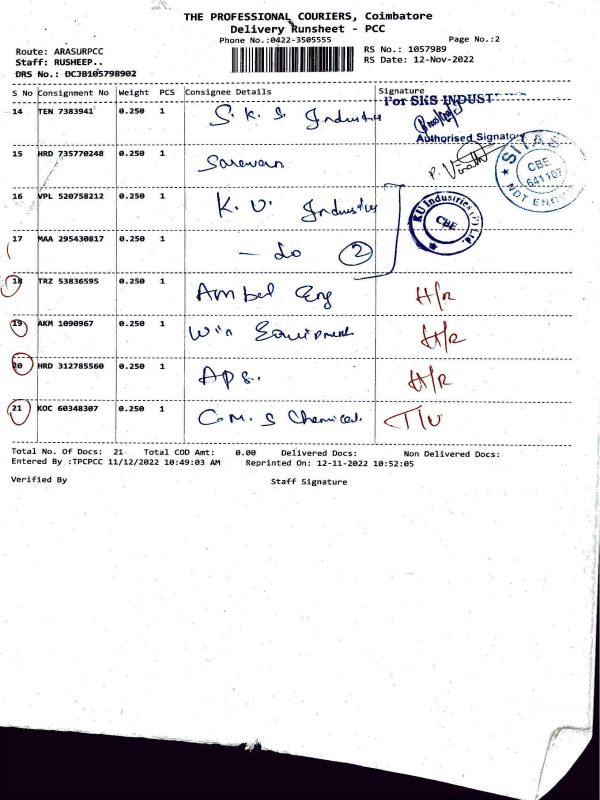 THE PROFESSIONAL COURIERS, Coimbatore
Delivery Runsheet - PCC
Phone No.:0422-3505555
Page No.:2
Route: ARASURPCC
RS No.: 1057989
Staff: RUSHEEP..
RS Date: 12-Nov-2022
DRS No.: DCJB105798902
S No Consignment No Weight PCS Consignee Details Signature
For SKS INDUST
14 TEN 7383941 0.250 1 S. K. S Industries
Authorised Signato
15 HRD 735770248 0.250 1 Saravan P. Vinoth
SITAS CBE 641107 NOT ENG
16 VPL 520758212 0.250 1 K. U. Industries
KU Industries (P) Ltd. CBE
17 MAA 295430817 0.250 1 - do 2
18 TRZ 53836595 0.250 1 Ambal Eng H/R
19 AKM 1090967 0.250 1 Win Equipment H/R
20 HRD 312785560 0.250 1 Aps. H/R
21 KOC 60348307 0.250 1 Com. S Chemical. T/U
Total No. Of Docs: 21 Total COD Amt: 0.00 Delivered Docs: Non Delivered Docs:
Entered By :TPCPCC 11/12/2022 10:49:03 AM Reprinted On: 12-11-2022 10:52:05
Verified By Staff Signature